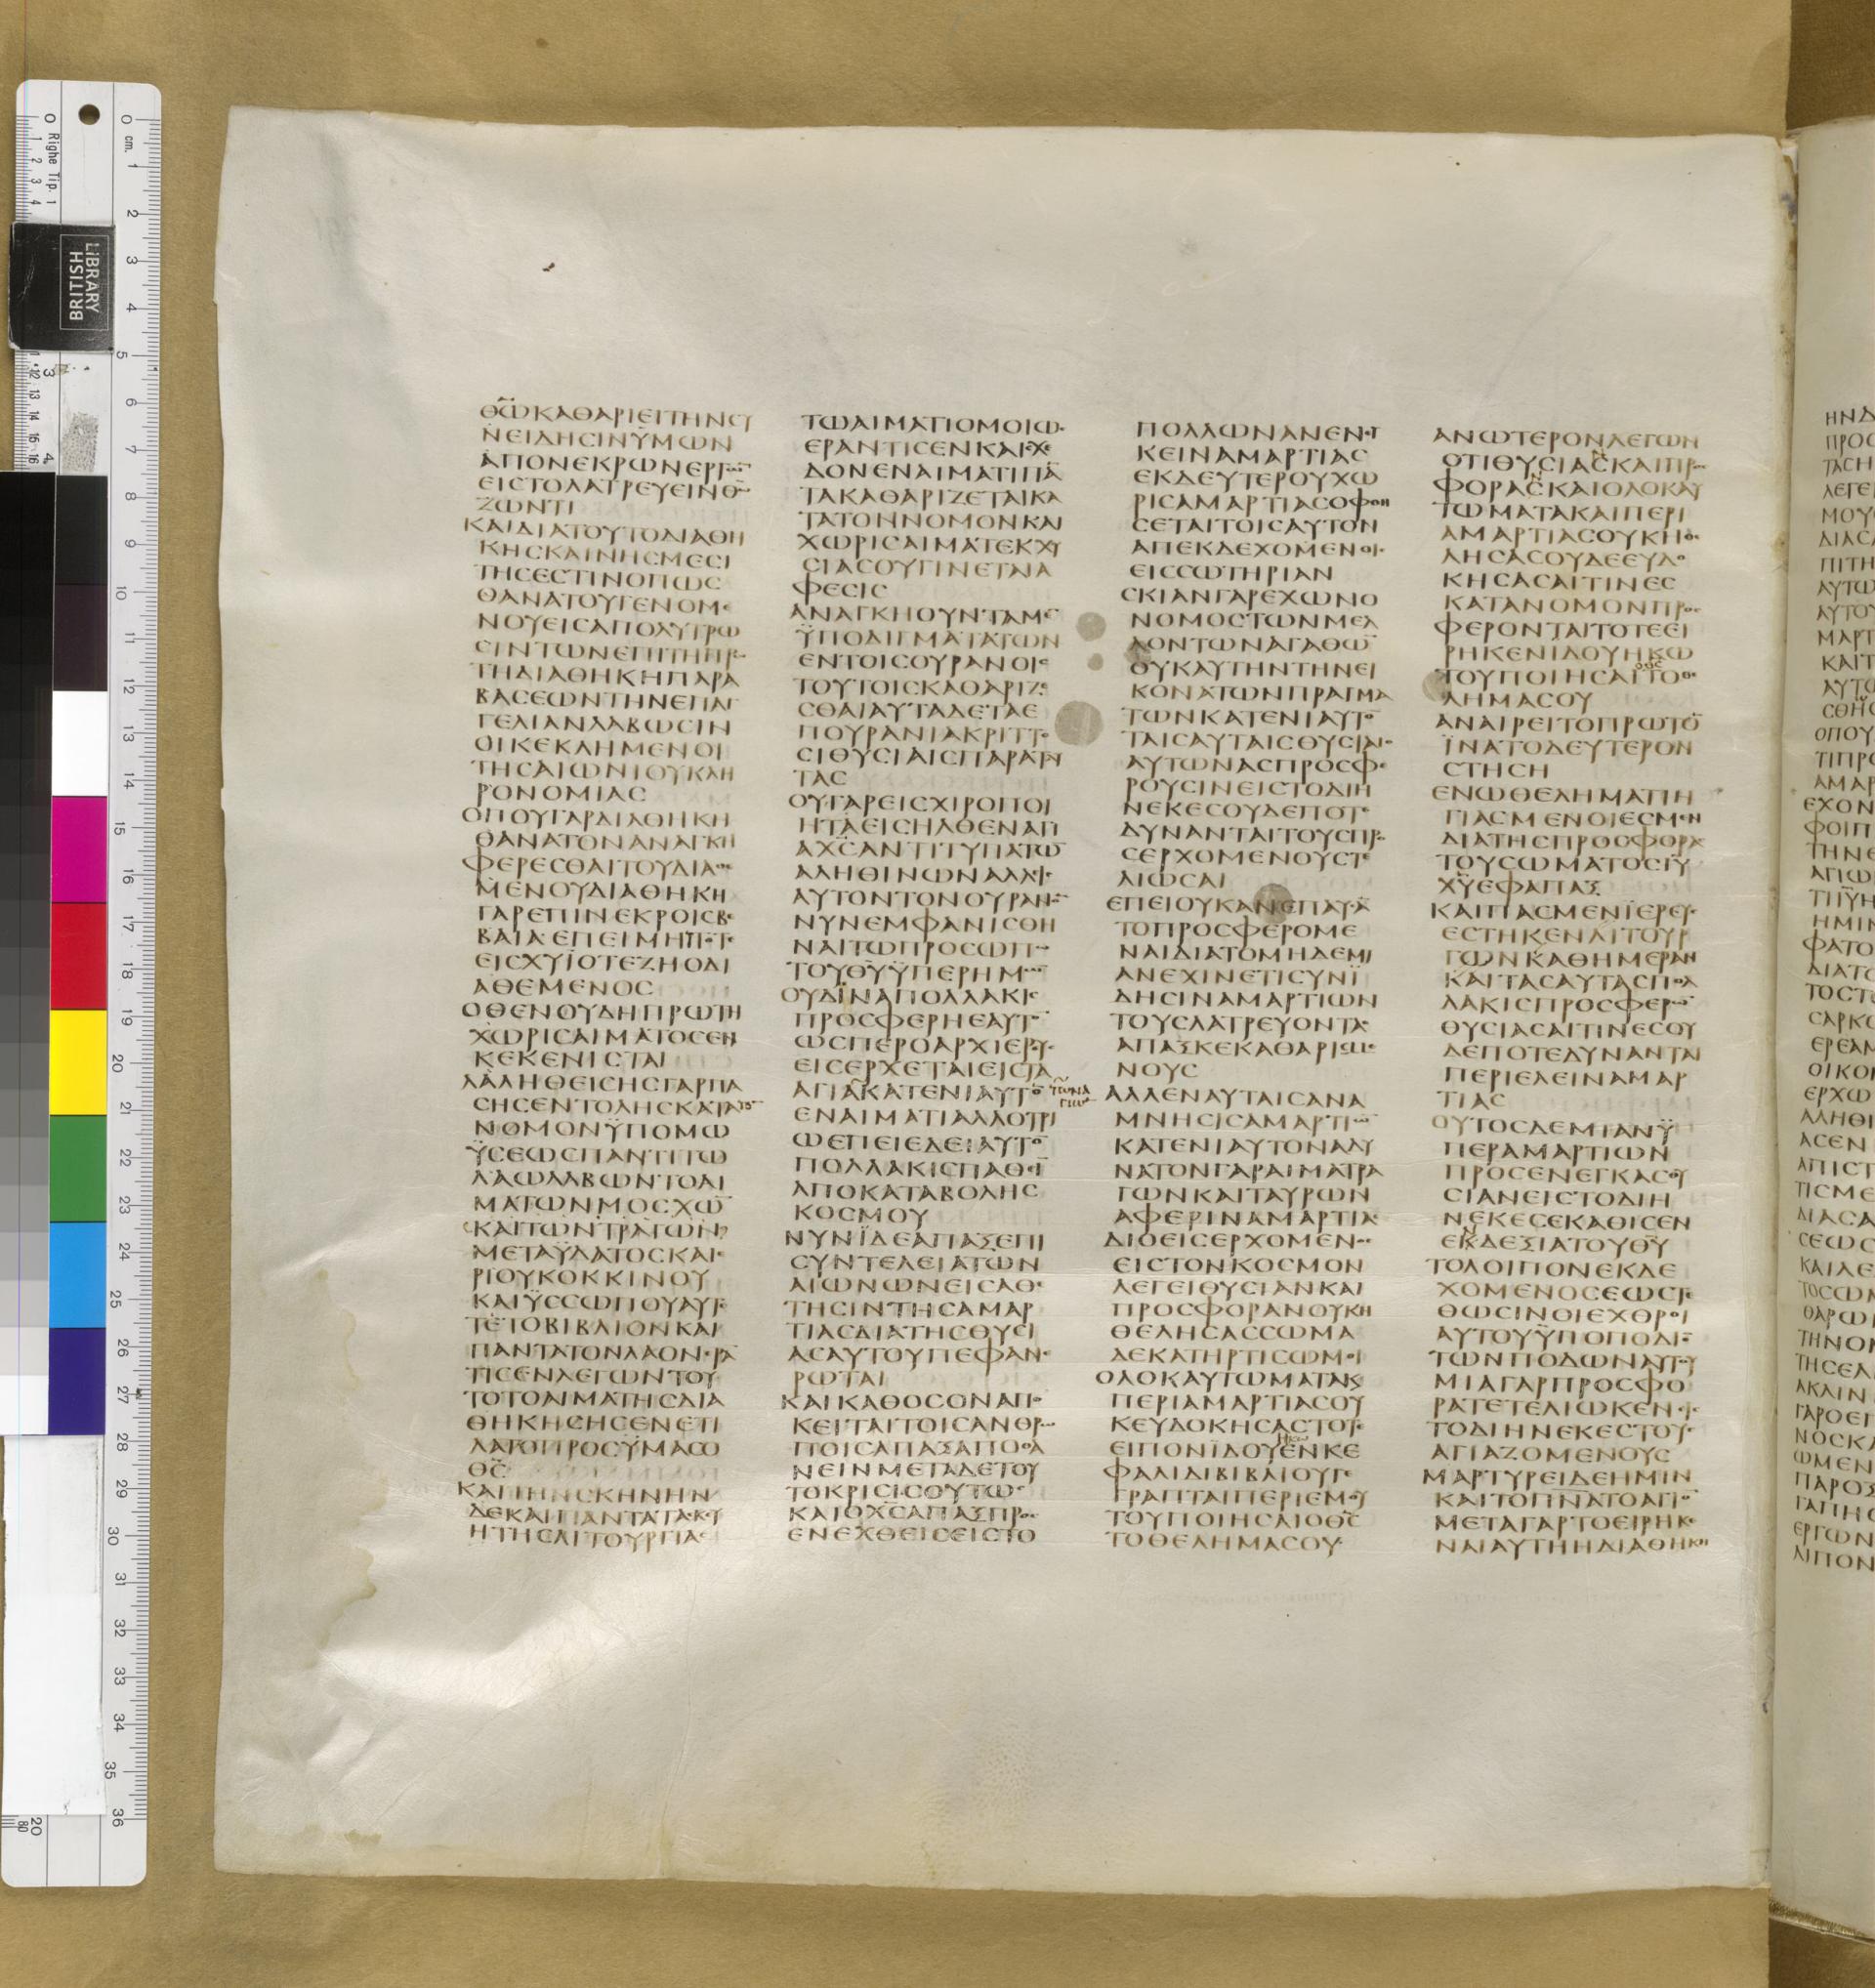 ΘΩ ΚΑΘΑΡΙΕΙ ΤΗΝ ϹΥ
ΝΕΙΔΗϹΙΝ ΫΜΩΝ
ΑΠΟ ΝΕΚΡΩΝ ΕΡΓΩ
ΕΙϹ ΤΟ ΛΑΤΡΕΥΕΙΝ ΘΩ
ΖΩΝΤΙ
ΚΑΙ ΔΙΑ ΤΟΥΤΟ ΔΙΑΘΗ
ΚΗϹ ΚΑΙΝΗϹ ΜΕϹΙ
ΤΗϹ ΕϹΤΙΝ ΟΠΩϹ
ΘΑΝΑΤΟΥ ΓΕΝΟΜΕ
ΝΟΥ ΕΙϹ ΑΠΟΛΥΤΡΩ
ϹΙΝ ΤΩΝ ΕΠΙ ΤΗ ΠΡΩ
ΤΗ ΔΙΑΘΗΚΗ ΠΑΡΑ
ΒΑϹΕΩΝ ΤΗΝ ΕΠΑΓ
ΓΕΛΙΑΝ ΛΑΒΩϹΙΝ
ΟΙ ΚΕΚΛΗΜΕΝΟΙ
ΤΗϹ ΑΙΩΝΙΟΥ ΚΛΗ
ΡΟΝΟΜΙΑϹ
ΟΠΟΥ ΓΑΡ ΔΙΑΘΗΚΗ
ΘΑΝΑΤΟΝ ΑΝΑΓΚΗ
ΦΕΡΕϹΘΑΙ ΤΟΥ ΔΙΑΘΕ
ΜΕΝΟΥ ΔΙΑΘΗΚΗ
ΓΑΡ ΕΠΙ ΝΕΚΡΟΙϹ ΒΕ
ΒΑΙΑ ΕΠΕΙ ΜΗΠΟΤΕ
ΕΙϹΧΥΪ ΟΤΕ ΖΗ Ο ΔΙ
ΑΘΕΜΕΝΟϹ
ΟΘΕΝ ΟΥΔΗ ΠΡΩΤΗ
ΧΩΡΙϹ ΑΙΜΑΤΟϹ ΕΝ
ΚΕΚΕΝΙϹΤΑΙ
ΛΑΛΗΘΕΙϹΗϹ ΓΑΡ ΠΑ
ϹΗϹ ΕΝΤΟΛΗϹ ΚΑΤΑ ΤΟΝ
ΝΟΜΟΝ ΫΠΟ ΜΩ
ΫϹΕΩϹ ΠΑΝΤΙ ΤΩ
ΛΑΩ ΛΑΒΩΝ ΤΟ ΑΙ
ΜΑ ΤΩΝ ΜΟϹΧΩ
ΚΑΙ ΤΩΝ ΤΡΑΓΩΝ
ΜΕΤΑ ΫΔΑΤΟϹ ΚΑΙ
ΡΙΟΥ ΚΟΚΚΙΝΟΥ
ΚΑΙ ΫϹϹΩΠΟΥ ΑΥΤΟ
ΤΕ ΤΟ ΒΙΒΛΙΟΝ ΚΑΙ
ΠΑΝΤΑ ΤΟΝ ΛΑΟΝ ΕΡΑ
ΤΙϹΕΝ ΛΕΓΩΝ ΤΟΥ
ΤΟ ΤΟ ΑΙΜΑ ΤΗϹ ΔΙΑ
ΘΗΚΗϹ ΗϹ ΕΝΕΤΙ
ΛΑΤΟ ΠΡΟϹ ΫΜΑϹ Ο
ΘϹ
ΚΑΙ ΤΗΝ ϹΚΗΝΗΝ
ΔΕ ΚΑΙ ΠΑΝΤΑ ΤΑ ϹΚΕΥ
Η ΤΗϹ ΛΙΤΟΥΡΓΙΑϹ
ΤΩ ΑΙΜΑΤΙ ΟΜΟΙΩϹ
ΕΡΑΝΤΙϹΕΝ ΚΑΙ ϹΧΕ
ΔΟΝ ΕΝ ΑΙΜΑΤΙ ΠΑ
ΤΑ ΚΑΘΑΡΙΖΕΤΑΙ ΚΑ
ΤΑ ΤΟΝ ΝΟΜΟΝ ΚΑΙ
ΧΩΡΙϹ ΑΙΜΑΤΕΚΧΥ
ϹΙΑϹ ΟΥ ΓΙΝΕΤΑΙ Α
ΦΕϹΙϹ
ΑΝΑΓΚΗ ΟΥΝ ΤΑ ΜΕ
ΫΠΟΔΙΓΜΑΤΑ ΤΩΝ
ΕΝ ΤΟΙϹ ΟΥΡΑΝΟΙϹ
ΤΟΥΤΟΙϹ ΚΑΘΑΡΙΖΕ
ϹΘΑΙ ΑΥΤΑ ΔΕ ΤΑ Ε
ΠΟΥΡΑΝΙΑ ΚΡΙΤΤΟ
ϹΙ ΘΥϹΙΑΙϹ ΠΑΡΑ ΤΑΥ
ΤΑϹ
ΟΥ ΓΑΡ ΕΙϹ ΧΙΡΟΠΟΙ
ΗΤΑ ΕΙϹΗΛΘΕΝ ΑΓΙ
Α ΧϹ ΑΝΤΙΤΥΠΑ ΤΩ
ΑΛΗΘΙΝΩΝ ΑΛΛ ΕΙϹ
ΑΥΤΟΝ ΤΟΝ ΟΥΡΑΝΟ
ΝΥΝ ΕΜΦΑΝΙϹΘΗ
ΝΑΙ ΤΩ ΠΡΟϹΩΠΩ
ΤΟΥ ΘΥ ΫΠΕΡ ΗΜΩ
ΟΥΔ ΪΝΑ ΠΟΛΛΑΚΙϹ
ΠΡΟϹΦΕΡΗ ΕΑΥΤΟ
ΩϹΠΕΡ Ο ΑΡΧΙΕΡΕΥϹ
ΕΙϹΕΡΧΕΤΑΙ ΕΙϹ ΤΑ
ΑΓΙΑ ΚΑΤ ΕΝΙΑΥΤΟ
ΤΩΝ Α
ΓΙΩ
ΕΝ ΑΙΜΑΤΙ ΑΛΛΟΤΡΙ
Ω ΕΠΕΙ ΕΔΕΙ ΑΥΤΟ
ΠΟΛΛΑΚΙϹ ΠΑΘΕΙ
ΑΠΟ ΚΑΤΑΒΟΛΗϹ
ΚΟϹΜΟΥ
ΝΥΝΪ ΔΕ ΑΠΑΞ ΕΠΙ
ϹΥΝΤΕΛΕΙΑ ΤΩΝ
ΑΙΩΝΩΝ ΕΙϹ ΑΘΕ
ΤΗϹΙΝ ΤΗϹ ΑΜΑΡ
ΤΙΑϹ ΔΙΑ ΤΗϹ ΘΥϹΙ
ΑϹ ΑΥΤΟΥ ΠΕΦΑΝΕ
ΡΩΤΑΙ
ΚΑΙ ΚΑΘ ΟϹΟΝ ΑΠΟ
ΚΕΙΤΑΙ ΤΟΙϹ ΑΝΘΡΩ
ΠΟΙϹ ΑΠΑΞ ΑΠΟΘΑ
ΝΕΙΝ ΜΕΤΑ ΔΕ ΤΟΥ
ΤΟ ΚΡΙϹΙϹ ΟΥΤΩϹ
ΚΑΙ Ο ΧϹ ΑΠΑΞ ΠΡΟϹ
ΕΝΕΧΘΕΙϹ ΕΙϹ ΤΟ
ΠΟΛΛΩΝ ΑΝΕΝΕΓ
ΚΕΙΝ ΑΜΑΡΤΙΑϹ
ΕΚ ΔΕΥΤΕΡΟΥ ΧΩ
ΡΙϹ ΑΜΑΡΤΙΑϹ ΟΦΘΗ
ϹΕΤΑΙ ΤΟΙϹ ΑΥΤΟΝ
ΑΠΕΚΔΕΧΟΜΕΝΟΙϹ
ΕΙϹ ϹΩΤΗΡΙΑΝ
ϹΚΙΑΝ ΓΑΡ ΕΧΩΝ Ο
ΝΟΜΟϹ ΤΩΝ ΜΕΛ
ΛΟΝΤΩΝ ΑΓΑΘΩ
ΟΥΚ ΑΥΤΗΝ ΤΗΝ ΕΙ
ΚΟΝΑ ΤΩΝ ΠΡΑΓΜΑ
ΤΩΝ ΚΑΤ ΕΝΙΑΥΤΟ
ΤΑΙϹ ΑΥΤΑΙϹ ΘΥϹΙΑΙϹ
ΑΥΤΩΝ ΑϹ ΠΡΟϹΦΕ
ΡΟΥϹΙΝ ΕΙϹ ΤΟ ΔΙΗ
ΝΕΚΕϹ ΟΥΔΕΠΟΤΕ
ΔΥΝΑΝΤΑΙ ΤΟΥϹ ΠΡΟ
ϹΕΡΧΟΜΕΝΟΥϹ ΤΕ
ΛΙΩϹΑΙ
ΕΠΕΙ ΟΥΚ ΑΝ ΕΠΑΥϹΑ
ΤΟ ΠΡΟϹΦΕΡΟΜΕ
ΝΑΙ ΔΙΑ ΤΟ ΜΗΔΕΜΙ
ΑΝ ΕΧΙΝ ΕΤΙ ϹΥΝΪ
ΔΗϹΙΝ ΑΜΑΡΤΙΩΝ
ΤΟΥϹ ΛΑΤΡΕΥΟΝΤΑϹ
ΑΠΑΞ ΚΕΚΑΘΑΡΙϹΜΕ
ΝΟΥϹ
ΑΛΛ ΕΝ ΑΥΤΑΙϹ ΑΝΑ
ΜΝΗϹΙϹ ΑΜΑΡΤΙΩ
ΚΑΤ ΕΝΙΑΥΤΟΝ ΑΔΥ
ΝΑΤΟΝ ΓΑΡ ΑΙΜΑ ΤΡΑ
ΓΩΝ ΚΑΙ ΤΑΥΡΩΝ
ΑΦΕΡΙΝ ΑΜΑΡΤΙΑϹ
ΔΙΟ ΕΙϹΕΡΧΟΜΕΝΟϹ
ΕΙϹ ΤΟΝ ΚΟϹΜΟΝ
ΛΕΓΕΙ ΘΥϹΙΑΝ ΚΑΙ
ΠΡΟϹΦΟΡΑΝ ΟΥΚ Η
ΘΕΛΗϹΑϹ ϹΩΜΑ
ΔΕ ΚΑΤΗΡΤΙϹΩ ΜΟΙ
ΟΛΟΚΑΥΤΩΜΑΤΑ ΚΑΙ
ΠΕΡΙ ΑΜΑΡΤΙΑϹ ΟΥ
Κ ΕΥΔΟΚΗϹΑϹ ΤΟΤΕ
ΕΙΠΟΝ ΪΔΟΥ ΗΚΩ ΕΝ ΚΕ
ΦΑΛΙΔΙ ΒΙΒΛΙΟΥ ΓΕ
ΓΡΑΠΤΑΙ ΠΕΡΙ ΕΜΟΥ
ΤΟΥ ΠΟΙΗϹΑΙ Ο ΘϹ
ΤΟ ΘΕΛΗΜΑ ϹΟΥ
ΑΝΩΤΕΡΟΝ ΛΕΓΩΝ
ΟΤΙ ΘΥϹΙΑϹ ΚΑΙ ΠΡΟϹ
ΦΟΡΑϹ ΚΑΙ ΟΛΟΚΑΥ
ΤΩΜΑΤΑ ΚΑΙ ΠΕΡΙ
ΑΜΑΡΤΙΑϹ ΟΥΚ ΗΘΕ
ΛΗϹΑϹ ΟΥΔΕ ΕΥΔΟ
ΚΗϹΑϹ ΑΙΤΙΝΕϹ
ΚΑΤΑ ΝΟΜΟΝ ΠΡΟϹ
ΦΕΡΟΝΤΑΙ ΤΟΤΕ ΕΙ
ΡΗΚΕΝ ΙΔΟΥ ΗΚΩ
ΤΟΥ ΠΟΙΗϹΑΙ Ο ΘϹ ΤΟ ΘΕ
ΛΗΜΑ ϹΟΥ
ΑΝΑΙΡΕΙ ΤΟ ΠΡΩΤΟ
ΪΝΑ ΤΟ ΔΕΥΤΕΡΟΝ
ϹΤΗϹΗ
ΕΝ Ω ΘΕΛΗΜΑΤΙ Η
ΓΙΑϹΜΕΝΟΙ ΕϹΜΕΝ
ΔΙΑ ΤΗϹ ΠΡΟϹΦΟΡΑϹ
ΤΟΥ ϹΩΜΑΤΟϹ ΙΥ
ΧΥ ΕΦΑΠΑΞ
ΚΑΙ ΠΑϹ ΜΕΝ ΪΕΡΕΥϹ
ΕϹΤΗΚΕΝ ΛΙΤΟΥΡ
ΓΩΝ ΚΑΘ ΗΜΕΡΑΝ
ΚΑΙ ΤΑϹ ΑΥΤΑϹ ΠΟΛ
ΛΑΚΙϹ ΠΡΟϹΦΕΡΩ
ΘΥϹΙΑϹ ΑΙΤΙΝΕϹ ΟΥ
ΔΕΠΟΤΕ ΔΥΝΑΝΤΑΙ
ΠΕΡΙΕΛΕΙΝ ΑΜΑΡ
ΤΙΑϹ
ΟΥΤΟϹ ΔΕ ΜΙΑΝ Ϋ
ΠΕΡ ΑΜΑΡΤΙΩΝ
ΠΡΟϹΕΝΕΓΚΑϹ ΘΥ
ϹΙΑΝ ΕΙϹ ΤΟ ΔΙΗ
ΝΕΚΕϹ ΕΚΑΘΙϹΕΝ
ΕΚ ΔΕΞΙΑ ΤΟΥ ΘΥ
ΤΟ ΛΟΙΠΟΝ ΕΚΔΕ
ΧΟΜΕΝΟϹ ΕΩϹ ΤΕ
ΘΩϹΙΝ ΟΙ ΕΧΘΡΟΙ
ΑΥΤΟΥ ΫΠΟΠΟΔΙΟ
ΤΩΝ ΠΟΔΩΝ ΑΥΤΟΥ
ΜΙΑ ΓΑΡ ΠΡΟϹΦΟ
ΡΑ ΤΕΤΕΛΙΩΚΕΝ ΕΙϹ
ΤΟ ΔΙΗΝΕΚΕϹ ΤΟΥϹ
ΑΓΙΑΖΟΜΕΝΟΥϹ
ΜΑΡΤΥΡΕΙ ΔΕ ΗΜΙΝ
ΚΑΙ ΤΟ ΠΝΑ ΤΟ ΑΓΙΟ
ΜΕΤΑ ΓΑΡ ΤΟ ΕΙΡΗΚΕ
ΝΑΙ ΑΥΤΗ Η ΔΙΑΘΗΚΗ
BRITISH
LIBRARY
Righe Tip.
cm.